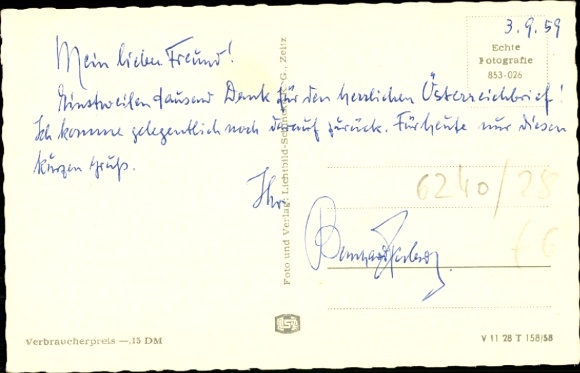 3.9.59
Echte
Fotografie
853-026
Mein lieber Freund!
Einstweilen tausend Dank für den herrlichen Österreichbrief!
Ich komme gelegentlich noch darauf zurück. Für heute nur diesen
kurzen Gruß.
Ihr
6240/28
Foto und Verlag: Lichtbild- G. Zeitz
Verbraucherpreis —.15 DM
V 11 28 T 158/58